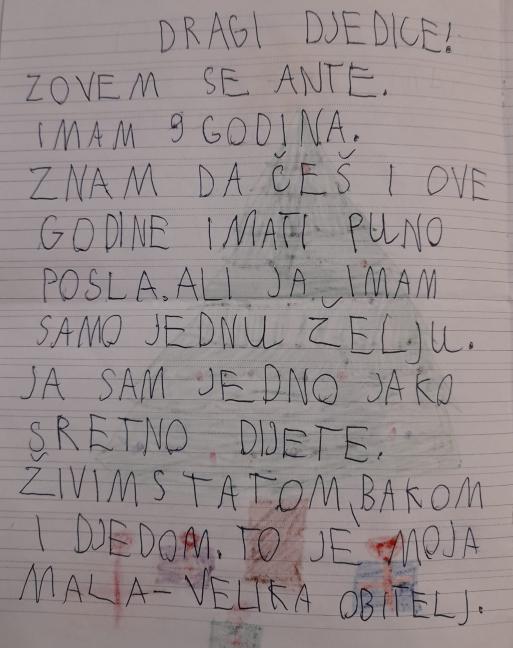 DRAGI DJEDICE!
ZOVEM SE ANTE.
IMAM 9 GODINA.
ZNAM DA ČEŠ I OVE
GODINE IMATI PUNO
POSLA. ALI JA IMAM
SAMO JEDNU ŽELJU.
JA SAM JEDNO JAKO
SRETNO DIJETE.
ŽIVIM S TATOM, BAKOM
I DJEDOM. TO JE MOJA
MALA-VELIKA OBITELJ.